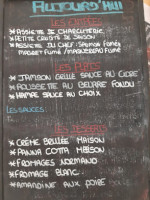 AUJOURD'HUI
LES ENTRÉES
ASSIETTE DE CHARCUTERIE
PETITE CRUDITÉ DE SAISON
ASSIETTE DU CHEF/SAUMON FUMÉ
MAGRET FUMÉ/MAQUEREAU FUMÉ
LES PLATS
JAMBON GRILLÉ SAUCE AU CIDRE
ROUSSETTE AU BEURRE FONDU
HAMPE SAUCE AU CHOIX
LES SAUCES:
CRÈME BRULÉE MAISON
PANNA COTTA MAISON
FROMAGES NORMAND
FROMAGE BLANC
AMANDINE AUX POIRE